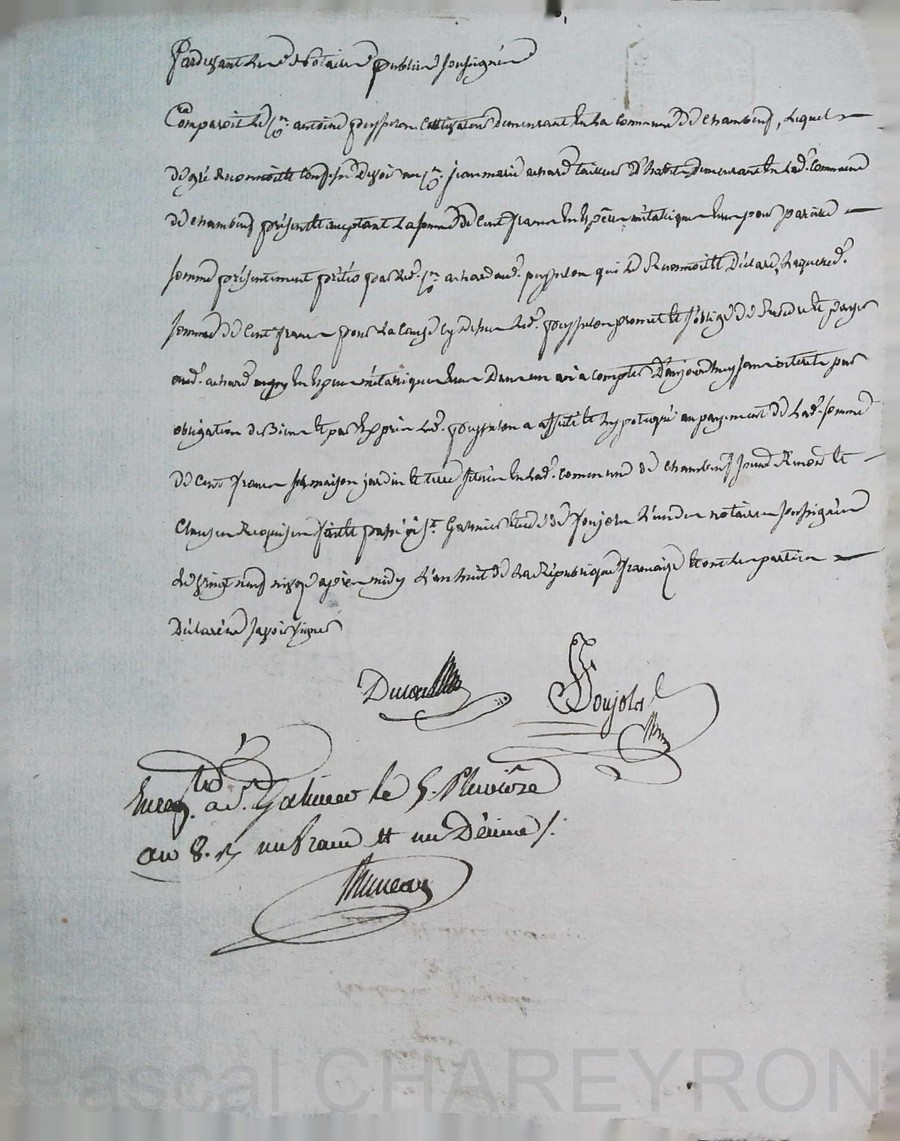 Pardevant les Notaires publics soussignés
Comparoit le Cn. antoine peysselon Cultivateur demeurant en la commune de chambeuf, lequel
de gré Reconnoitt Confesse devoir au Cn. jean marie achard tailleur d'habits demeurant en lad. commune
de chambeuf présent et acceptant la somme de Cent francs en Espèce métalique pour pareille
somme présentement prêtée par led. Cn. achard aud. peysselon qui le Reconnoitt déclare, laquelle d.
somme de Cent francs pour la cause cy dessus led. peysselon promet et s'oblige de Rendre et payer
aud. achard en Espèce métalique dans un an a compter d'aujourd'huy sans interets par
obligation de Biens et par Exprès led. peysselon a affecté et hypotequé au payement de lad. somme
de Cent francs sa maison jardin et terre située en lad. commune de chambeuf et
Clauses Requises fait et passé à St. Galmier Etude de Soujols l'un des notaires soussignés
le vingt neuf nivose après midy l'an huit de la République française et ont les parties
déclaré savoir signer
Soujols
Enreg.tré à St. Galmier le 5. Pluviôse
an 8. R. un franc et un Décime /.
Pascal CHAREYRON